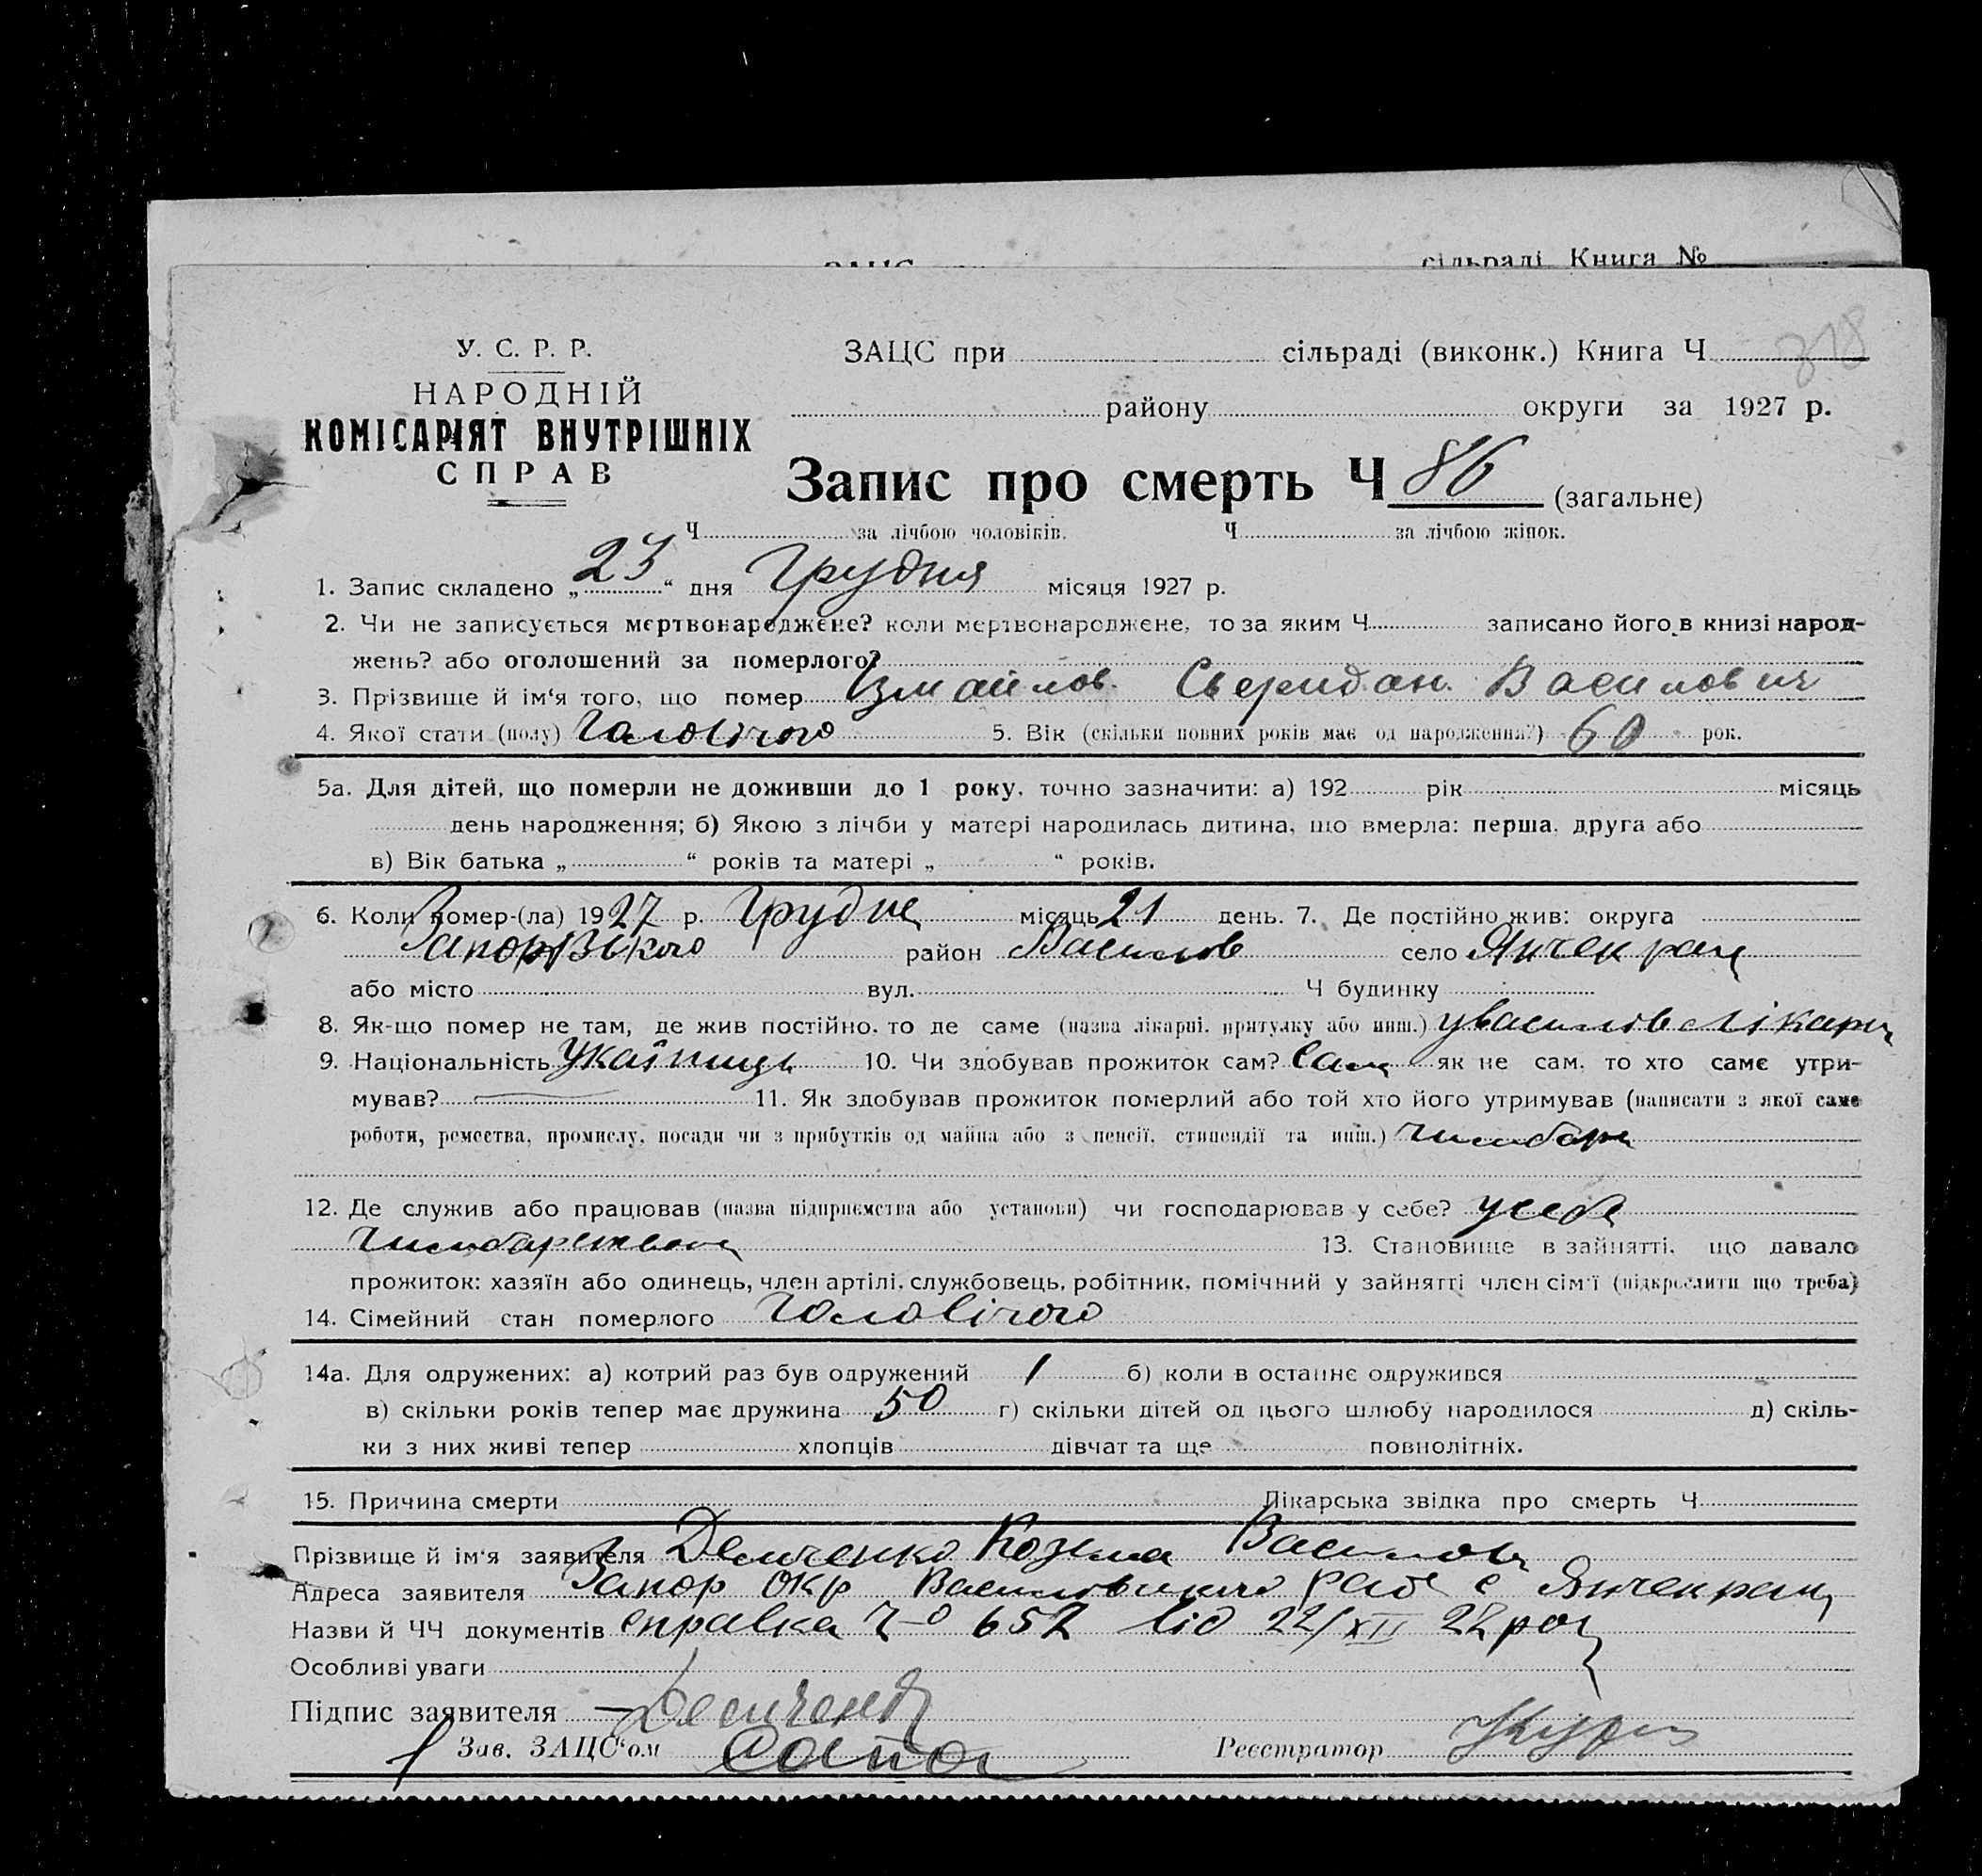 сільраді Книга №
У. С. Р. Р.
НАРОДНІЙ
КОМІСАРІЯТ ВНУТРІШНІХ
СПРАВ
318
ЗАЦС при сільраді (виконк.) Книга Ч
району округи за 1927 р.
Запис про смерть Ч 86 (загальне)
Ч за лічбою чоловіків. Ч за лічбою жінок.
1. Запис складено „23“ дня Грудня місяця 1927 р.
2. Чи не записується мертвонароджене? коли мертвонароджене, то за яким Ч записано його в книзі народ-
жень? або оголошений за померлого?
3. Прізвище й ім‘я того, що помер Ізмаілов Свиридон Василович
4. Якої стати (полу) Чоловічого 5. Вік (скільки повних років має од народження?) 60 рок.
5а. Для дітей, що померли не доживши до 1 року, точно зазначити: а) 192 рік місяць
день народження; б) Якою з лічби у матері народилась дитина, що вмерла: перша, друга або
в) Вік батька „ “ років та матері „ “ років.
6. Коли помер-(ла) 1927 р. Грудне місяць 21 день. 7. Де постійно жив: округа
район Василов село Янчекрац
або місто вул. Ч будинку
8. Як-що помер не там, де жив постійно, то де саме (назва лікарні, притулку або инш.) у василов лікарн
9. Національність Укаїниць 10. Чи здобував прожиток сам? Сам як не сам, то хто саме утри-
мував? — 11. Як здобував прожиток померлий або той хто його утримував (написати з якої саме
роботи, ремества, промислу, посади чи з прибутків од майна або з пенсії, стипендії та инш.) Чимбарк
12. Де служив або працював (назва підприємства або установи) чи господарював у себе? у себе
13. Становище в зайнятті, що давало
прожиток: хазяїн або одинець, член артілі, службовець, робітник, помічний у зайнятті член сім‘ї (підкреслити що треба)
14. Сімейний стан померлого Чоловічого
14а. Для одружених: а) котрий раз був одружений 1 б) коли в останнє одружився
в) скільки років тепер має дружина 50 г) скільки дітей од цього шлюбу народилося д) скіль-
ки з них живі тепер хлопців дівчат та ще повнолітніх.
15. Причина смерти Лікарська звідка про смерть Ч
Прізвище й ім‘я заявителя Демченко Козьма Василов
Адреса заявителя Запор окр Василовського рай с Янчекрац
Назви й ЧЧ документів справка 652 від 22/XII
Особливі уваги
Підпис заявителя Демченко
Зав. ЗАЦС‘ом
Реєстратор